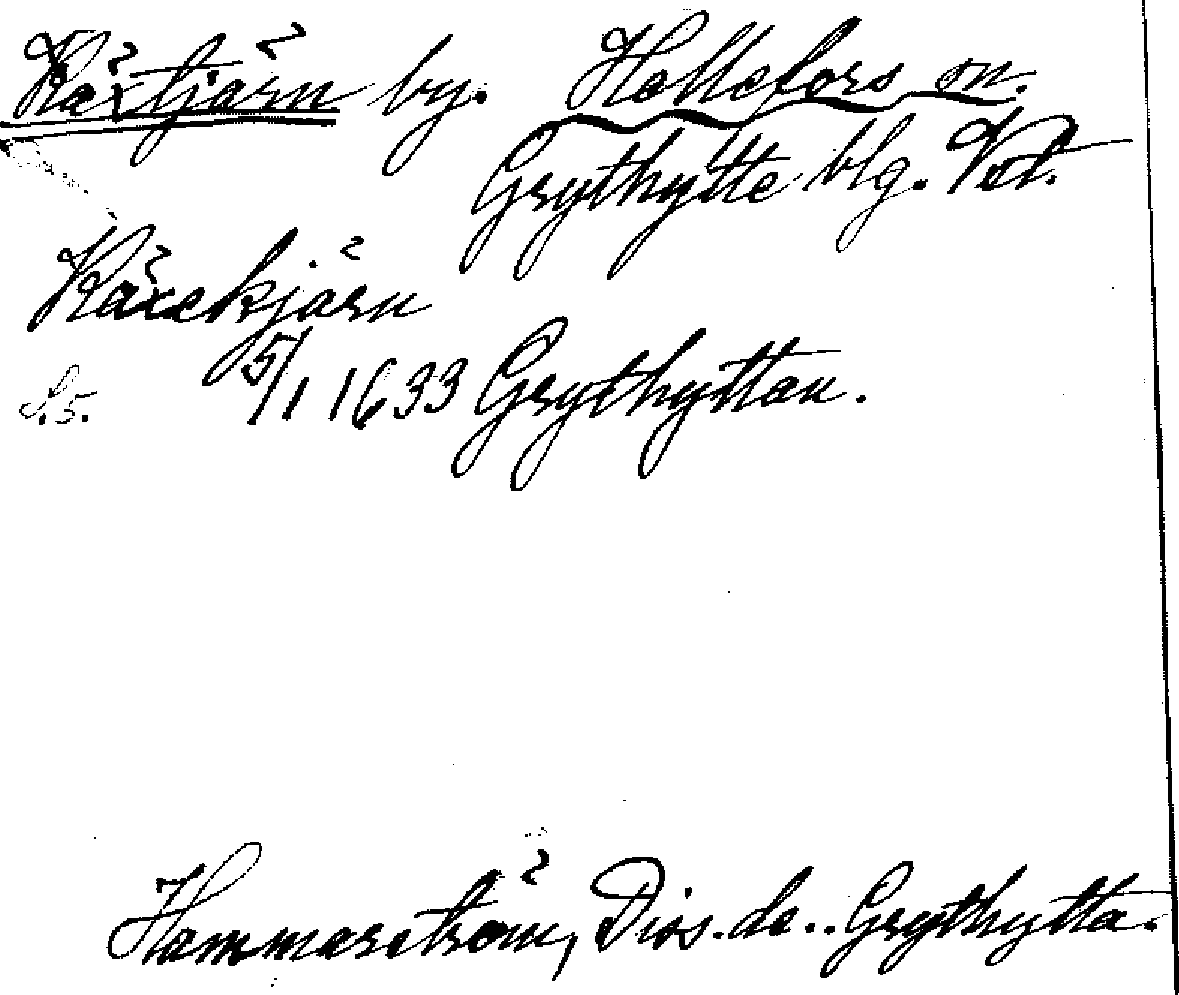 Käxtjärn by. Hellefors sn.
Grythytte blg. Vstml.
Käxekjärn
15/1 1633 Grythyttan.
S.5.
Hammarström, Diss. de.. Grythytta.